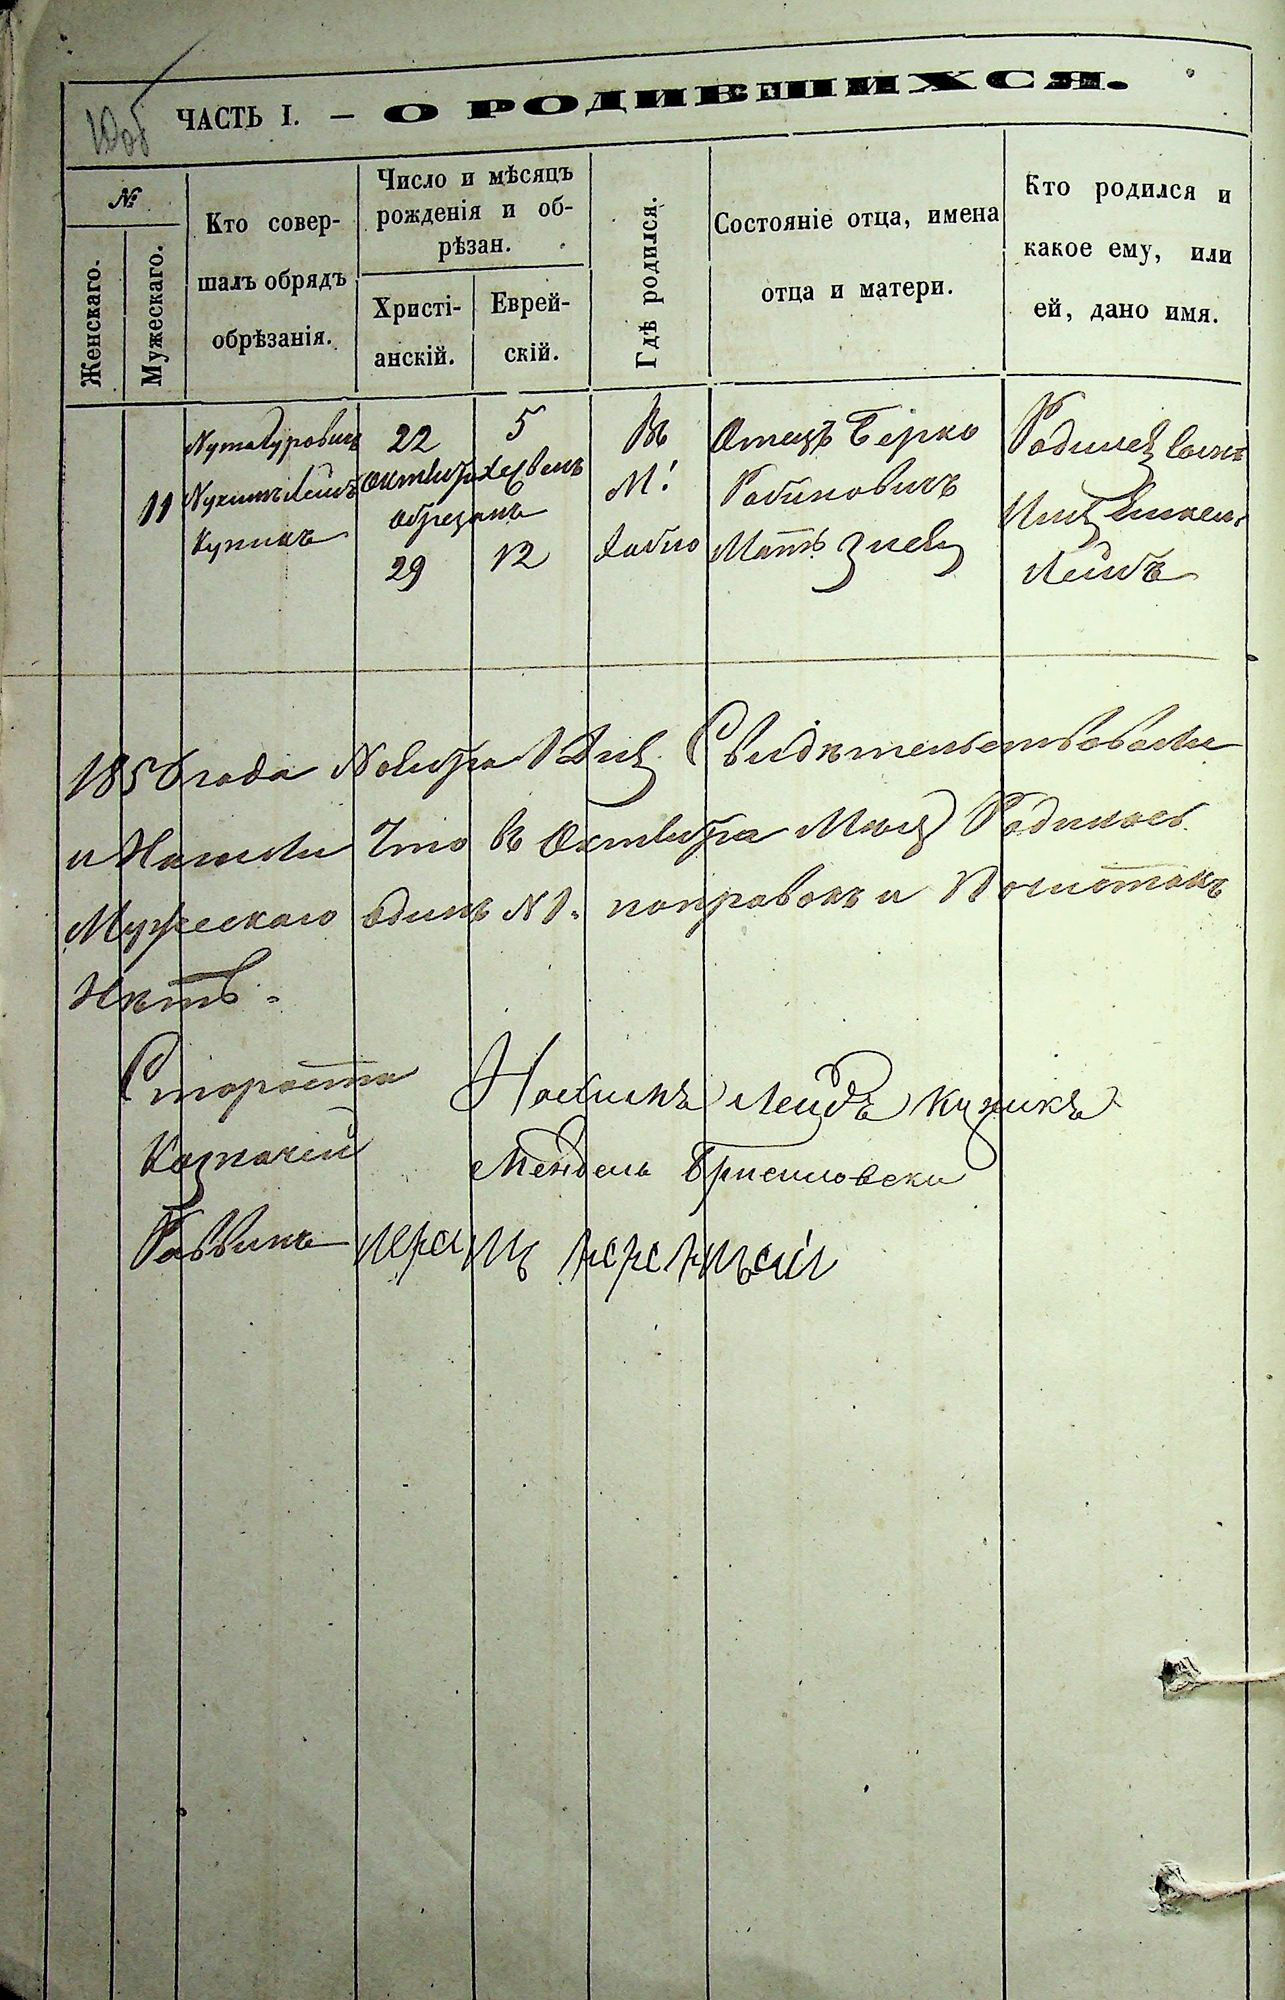 ЧАСТЬ I. — О РОДИВШИХСЯ.
№
Женскаго.
Мужескаго.
Кто совер-
шалъ обрядъ
обрѣзанія.
Число и мѣсяцъ
рожденія и об-
рѣзан.
Христі-
анскій.
Еврей-
скій.
Гдѣ родился.
Состояніе отца, имена
отца и матери.
Кто родился и
какое ему, или
ей, дано имя.
11
Лейбъ
Купикъ
22
октября
обрезанъ
29
5
Хесвенъ
12
Въ
М:
Отецъ Берко
Рабиновичъ
Мать
Родился сынъ
Имя
Лейбъ
1856 года Ноября 1 Дня Свидѣтельствовали
и Нашли Что въ Октябра Мця Родилось
Мужескаго одинъ N 1. поправокъ и Почистокъ
Нѣтъ.
Староста Лейбъ Купикъ
Казначей Мендель
Раввинъ